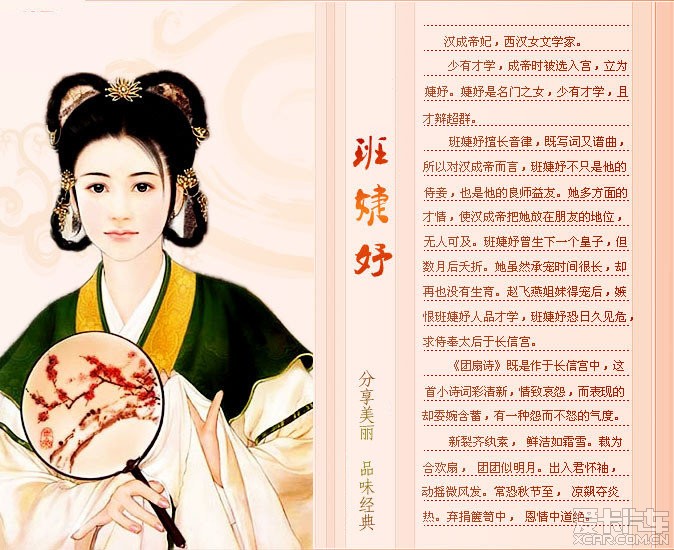 班婕妤
分享美丽 品味经典
汉成帝妃，西汉女文学家。
少有才学，成帝时被选入宫，立为
婕妤。婕妤是名门之女，少有才学，且
才辩超群。
班婕妤擅长音律，既写词又谱曲，
所以对汉成帝而言，班婕妤不只是他的
侍妾，也是他的良师益友。她多方面的
才情，使汉成帝把她放在朋友的地位，
无人可及。班婕妤曾生下一个皇子，但
数月后夭折。她虽然承宠时间很长，却
再也没有生育。赵飞燕姐妹得宠后，嫉
恨班婕妤人品才学，班婕妤恐日久见危，
求侍奉太后于长信宫。
《团扇诗》既是作于长信宫中，这
首小诗词彩清新，情致哀怨，而表现的
却委婉含蓄，有一种怨而不怒的气度。
新裂齐纨素， 鲜洁如霜雪。裁为
合欢扇， 团团似明月。出入君怀袖，
动摇微风发。常恐秋节至， 凉飙夺炎
热。弃捐箧笥中， 恩情中道绝。
爱卡汽车
XCAR.COM.CN